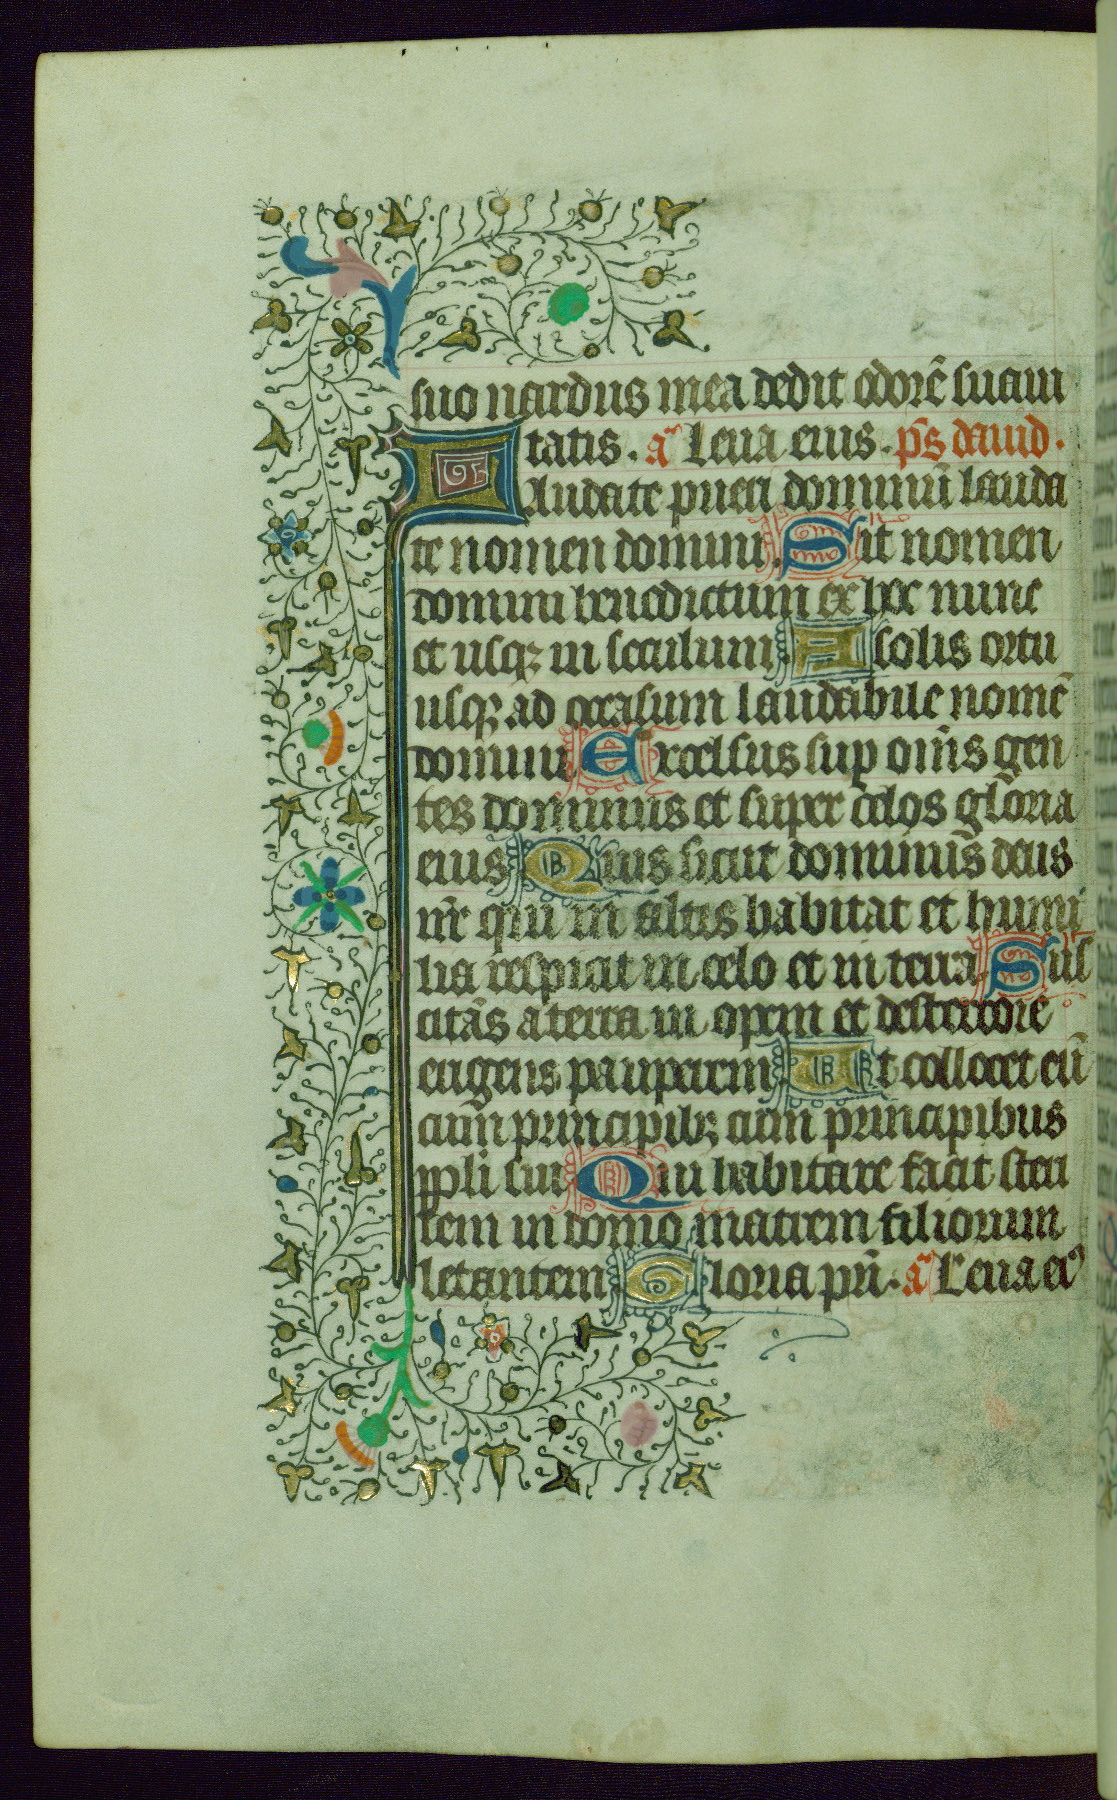 suo nardus mea dedit odorē suaui
tatis. a᷒ Leua eius. p̄s dauid.
Laudate pueri dominū lauda
te nomen domini. Sit nomen
domini benedictum ex hoc nunc
et usqꝫ in seculum. A solis ortu
usqꝫ ad occasum laudabile nomē
domini Excelsus sup om̄s gen
tes dominus et super celos gl̄oria
eius Quis sicut dominus deus
nr̄ qui in altis habitat et humi
lia respicit in celo et in terra. Sus
citās a terra in opem et de stercore
erigens pauperem. Ut collocet eū
cum principibꝫ cum principibus
ppli sui Qui habitare facit steri
lem in domo matrem filiorum
letantem Gloria pri̅. a᷒ Leua eiꝰ